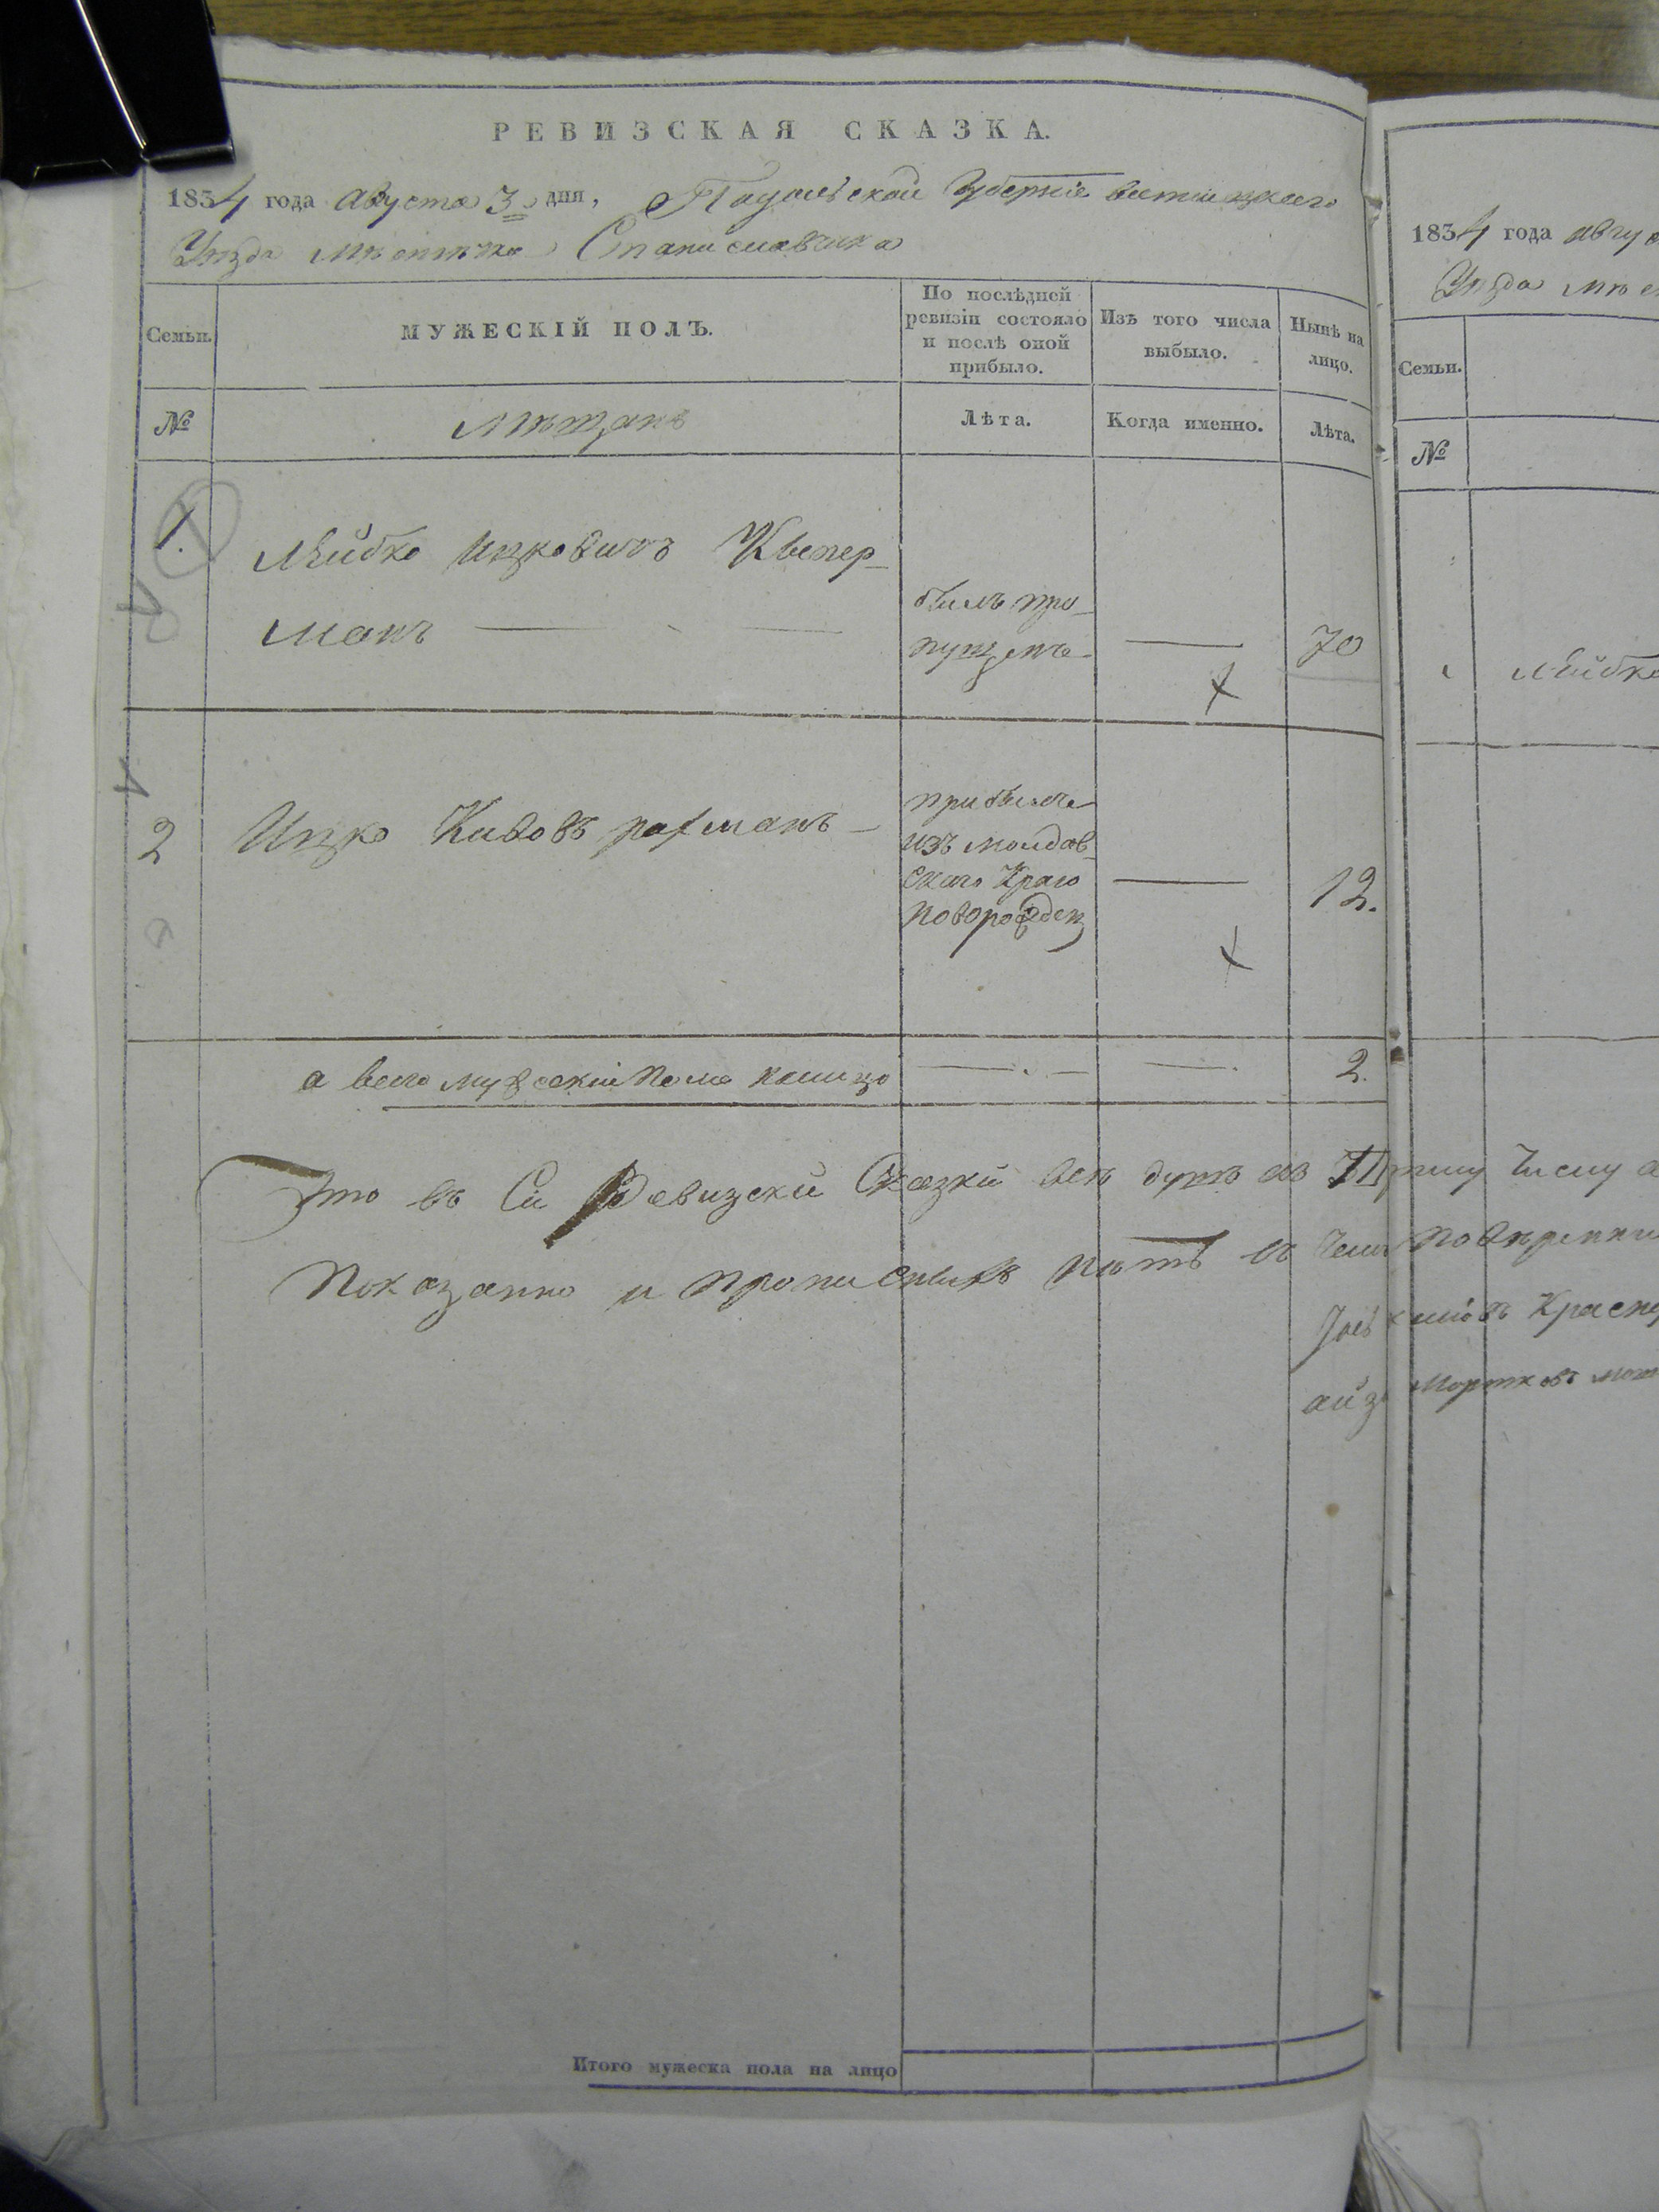 РЕВИЗСКАЯ СКАЗКА.
1834 года августа 3 дня, Подольской Губерние винницкаго
Уезда мѣстечка Станиславчика
Семьи.
МУЖЕСКІЙ ПОЛЪ.
По послѣдней
ревизіи состояло
и послѣ оной
прибыло.
Изъ того числа
выбыло.
Нынѣ на
лицо.
№
Мѣщанъ
Лѣта.
Когда именно.
Лѣта.
1.
Лейбко Ицковичъ
манъ
былъ про-
пущенъ
70
2
Ицко Кивовъ рахманъ
прибылъ
изъ молдав-
скаго Краю
новорожден
12.
а всего мужескій пола налицо
2.
Что въ Сій Ревизскій Сказки всѣ душѣ
Показанно и прописныхъ нѣтъ въ
айз Мортковъ
Итого мужеска пола на лицо
1834 года авгус
Уезда мѣс
Семьи.
№
Лейбко